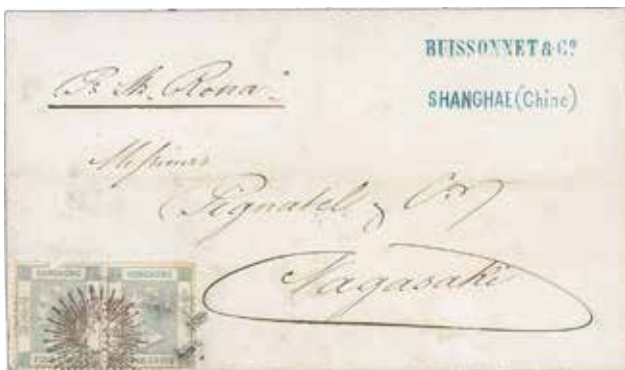 BUISSONNET & Cº
SHANGHAE (Chine)
Pr Str Rona
Messieurs
Pignatel & Co
Nagasaki
HONGKONG HONGKONG